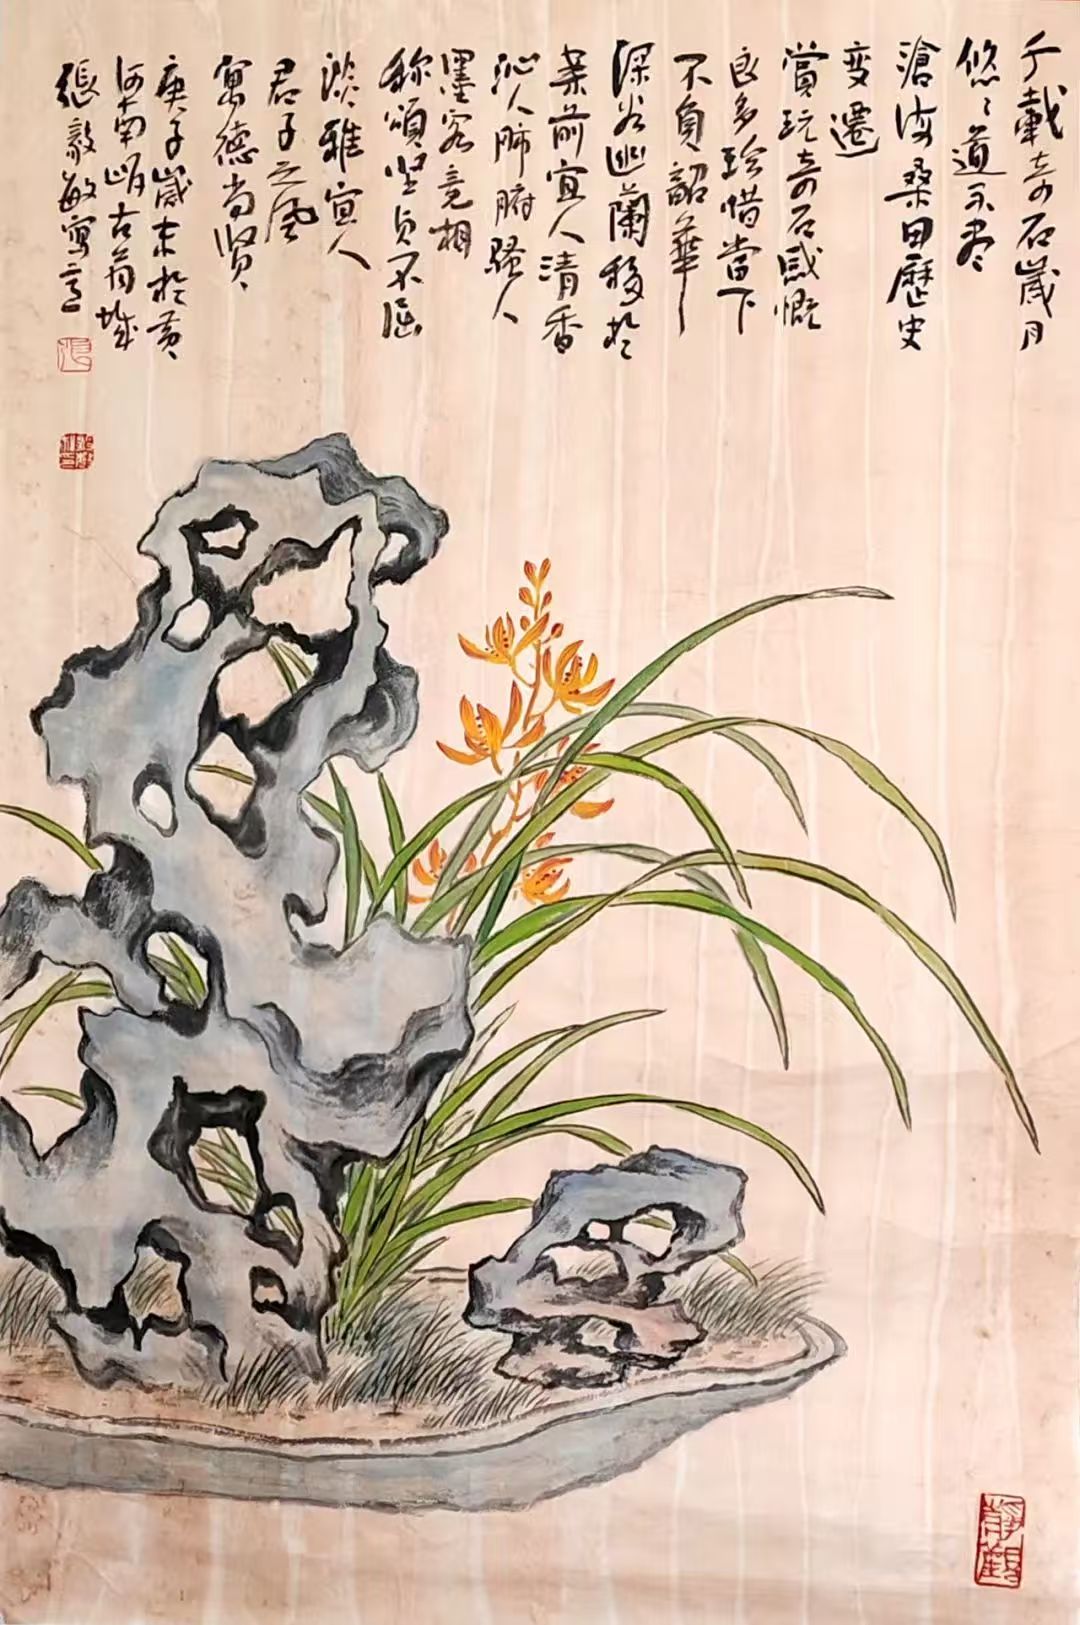 千載奇石歲月
悠〻道不盡
滄海桑田歷史
变遷
賞玩奇石感慨
良多珍惜當下
不負韶華
深谷幽蘭移於
案前宜人清香
沁人肺腑騷人
墨客竞相
称頌坚貞不屈
淡雅宜人
君子之风
寓德尚贤
庚子歲末於黄
河南岸古城
張毅敏寫意
靜觀